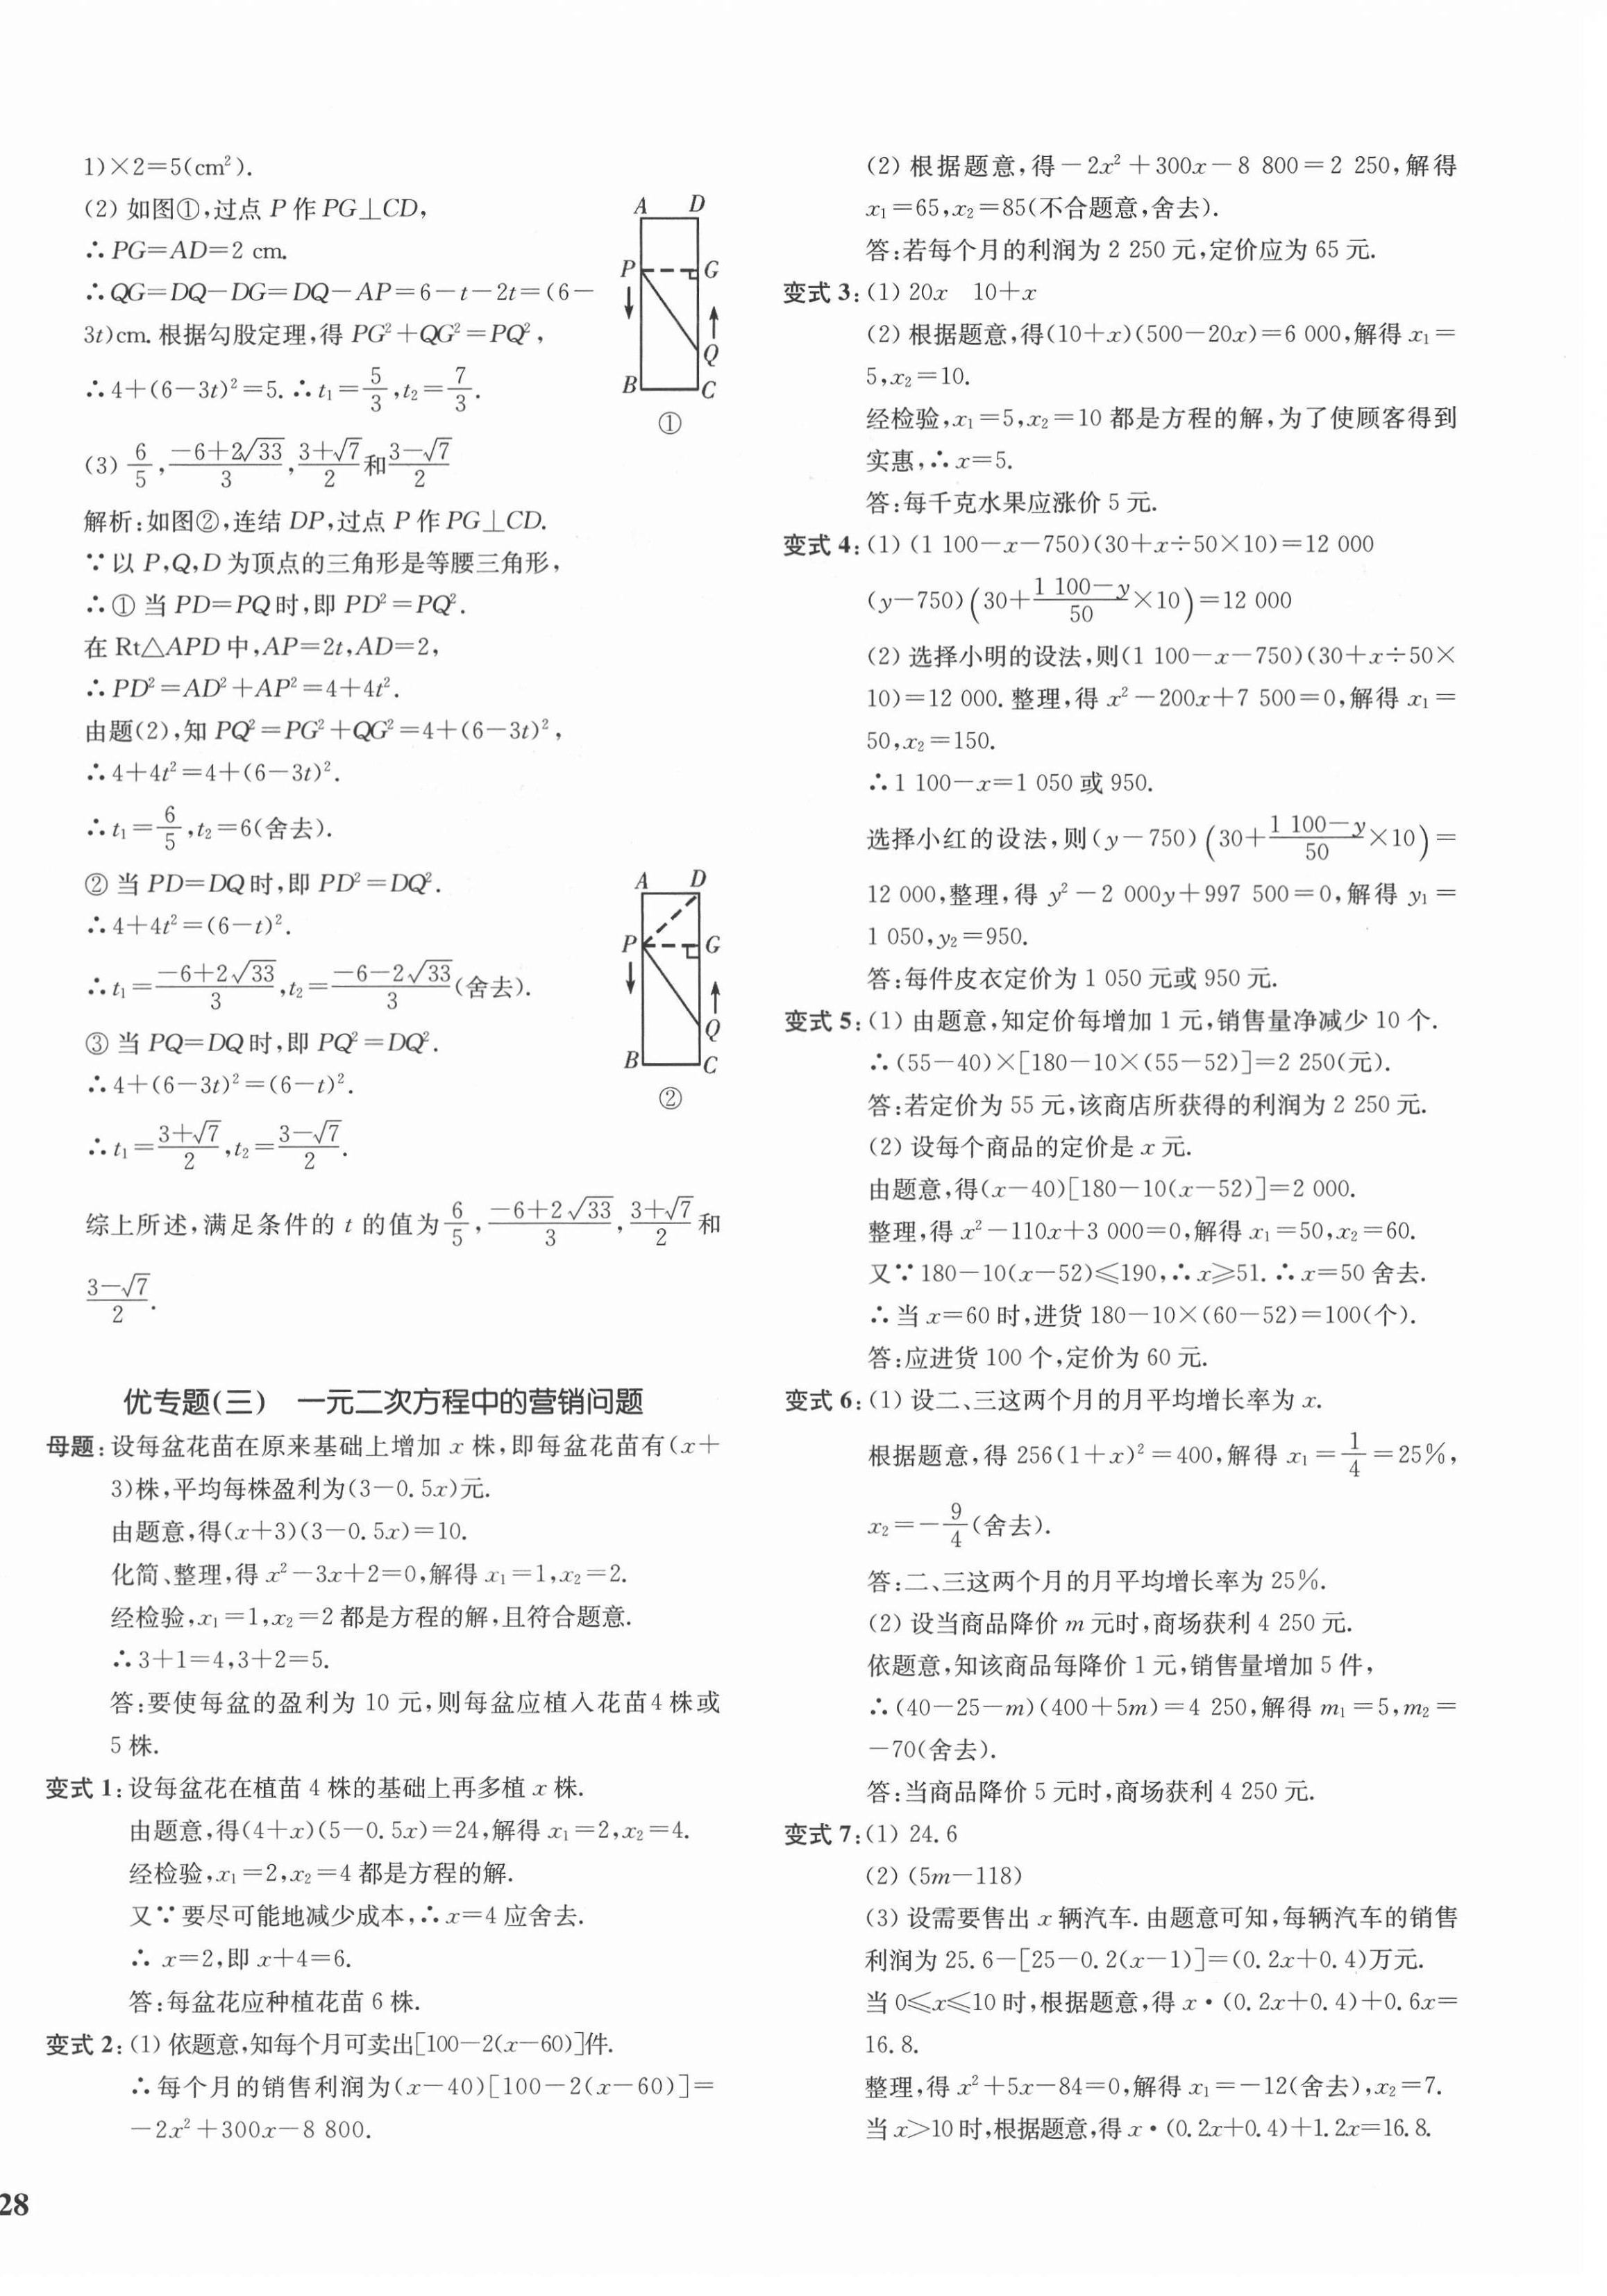 1)×2=5(cm²).
(2) 如图①,过点 P 作 PG⊥CD,
∴PG=AD=2 cm.
∴QG=DQ-DG=DQ-AP=6-t-2t=(6-
3t)cm. 根据勾股定理,得 PG²+QG²=PQ²,
∴4+(6-3t)²=5. ∴t₁=5/3,t₂=7/3.
A D
P G
Q
B C
①
(3) 6/5,(-6+2√33)/3,(3+√7)/2和(3-√7)/2
解析:如图②,连结 DP,过点 P 作 PG⊥CD.
∵以 P,Q,D 为顶点的三角形是等腰三角形,
∴① 当 PD=PQ 时,即 PD²=PQ².
在 Rt△APD 中,AP=2t,AD=2,
∴PD²=AD²+AP²=4+4t².
由题(2),知 PQ²=PG²+QG²=4+(6-3t)²,
∴4+4t²=4+(6-3t)².
∴t₁=6/5,t₂=6(舍去).
② 当 PD=DQ 时,即 PD²=DQ².
∴4+4t²=(6-t)².
∴t₁=(-6+2√33)/3,t₂=(-6-2√33)/3(舍去).
③ 当 PQ=DQ 时,即 PQ²=DQ².
∴4+(6-3t)²=(6-t)².
∴t₁=(3+√7)/2,t₂=(3-√7)/2.
A D
P G
Q
B C
②
综上所述,满足条件的 t 的值为6/5,(-6+2√33)/3,(3+√7)/2和
(3-√7)/2.
优专题(三) 一元二次方程中的营销问题
母题:设每盆花苗在原来基础上增加 x 株,即每盆花苗有(x+
3)株,平均每株盈利为(3-0.5x)元.
由题意,得(x+3)(3-0.5x)=10.
化简、整理,得 x²-3x+2=0,解得 x₁=1,x₂=2.
经检验,x₁=1,x₂=2 都是方程的解,且符合题意.
∴3+1=4,3+2=5.
答:要使每盆的盈利为 10 元,则每盆应植入花苗4 株或
5 株.
变式 1:设每盆花在植苗 4 株的基础上再多植 x 株.
由题意,得(4+x)(5-0.5x)=24,解得 x₁=2,x₂=4.
经检验,x₁=2,x₂=4 都是方程的解.
又∵要尽可能地减少成本,∴x=4 应舍去.
∴ x=2,即 x+4=6.
答:每盆花应种植花苗 6 株.
变式 2:(1) 依题意,知每个月可卖出[100-2(x-60)]件.
∴每个月的销售利润为(x-40)[100-2(x-60)]=
-2x²+300x-8 800.
28
(2) 根据题意,得-2x²+300x-8 800=2 250,解得
x₁=65,x₂=85(不合题意,舍去).
答:若每个月的利润为 2 250 元,定价应为 65 元.
变式 3:(1) 20x 10+x
(2) 根据题意,得(10+x)(500-20x)=6 000,解得 x₁=
5,x₂=10.
经检验,x₁=5,x₂=10 都是方程的解,为了使顾客得到
实惠,∴x=5.
答:每千克水果应涨价 5 元.
变式 4:(1) (1 100-x-750)(30+x÷50×10)=12 000
(y-750)(30+(1 100-y)/50×10)=12 000
(2) 选择小明的设法,则(1 100-x-750)(30+x÷50×
10)=12 000. 整理,得 x²-200x+7 500=0,解得 x₁=
50,x₂=150.
∴1 100-x=1 050 或 950.
选择小红的设法,则(y-750)(30+(1 100-y)/50×10)=
12 000,整理,得 y²-2 000y+997 500=0,解得 y₁=
1 050,y₂=950.
答:每件皮衣定价为 1 050 元或 950 元.
变式 5:(1) 由题意,知定价每增加 1 元,销售量净减少 10 个.
∴(55-40)×[180-10×(55-52)]=2 250(元).
答:若定价为 55 元,该商店所获得的利润为 2 250 元.
(2) 设每个商品的定价是 x 元.
由题意,得(x-40)[180-10(x-52)]=2 000.
整理,得 x²-110x+3 000=0,解得 x₁=50,x₂=60.
又∵180-10(x-52)≤190,∴x≥51. ∴x=50 舍去.
∴当 x=60 时,进货 180-10×(60-52)=100(个).
答:应进货 100 个,定价为 60 元.
变式 6:(1) 设二、三这两个月的月平均增长率为 x.
根据题意,得 256(1+x)²=400,解得 x₁=1/4=25%,
x₂=-9/4(舍去).
答:二、三这两个月的月平均增长率为 25%.
(2) 设当商品降价 m 元时,商场获利 4 250 元.
依题意,知该商品每降价 1 元,销售量增加 5 件,
∴(40-25-m)(400+5m)=4 250,解得 m₁=5,m₂=
-70(舍去).
答:当商品降价 5 元时,商场获利 4 250 元.
变式 7:(1) 24.6
(2) (5m-118)
(3) 设需要售出 x 辆汽车. 由题意可知,每辆汽车的销售
利润为 25.6-[25-0.2(x-1)]=(0.2x+0.4)万元.
当 0≤x≤10 时,根据题意,得 x·(0.2x+0.4)+0.6x=
16.8.
整理,得 x²+5x-84=0,解得 x₁=-12(舍去),x₂=7.
当 x>10 时,根据题意,得 x·(0.2x+0.4)+1.2x=16.8.